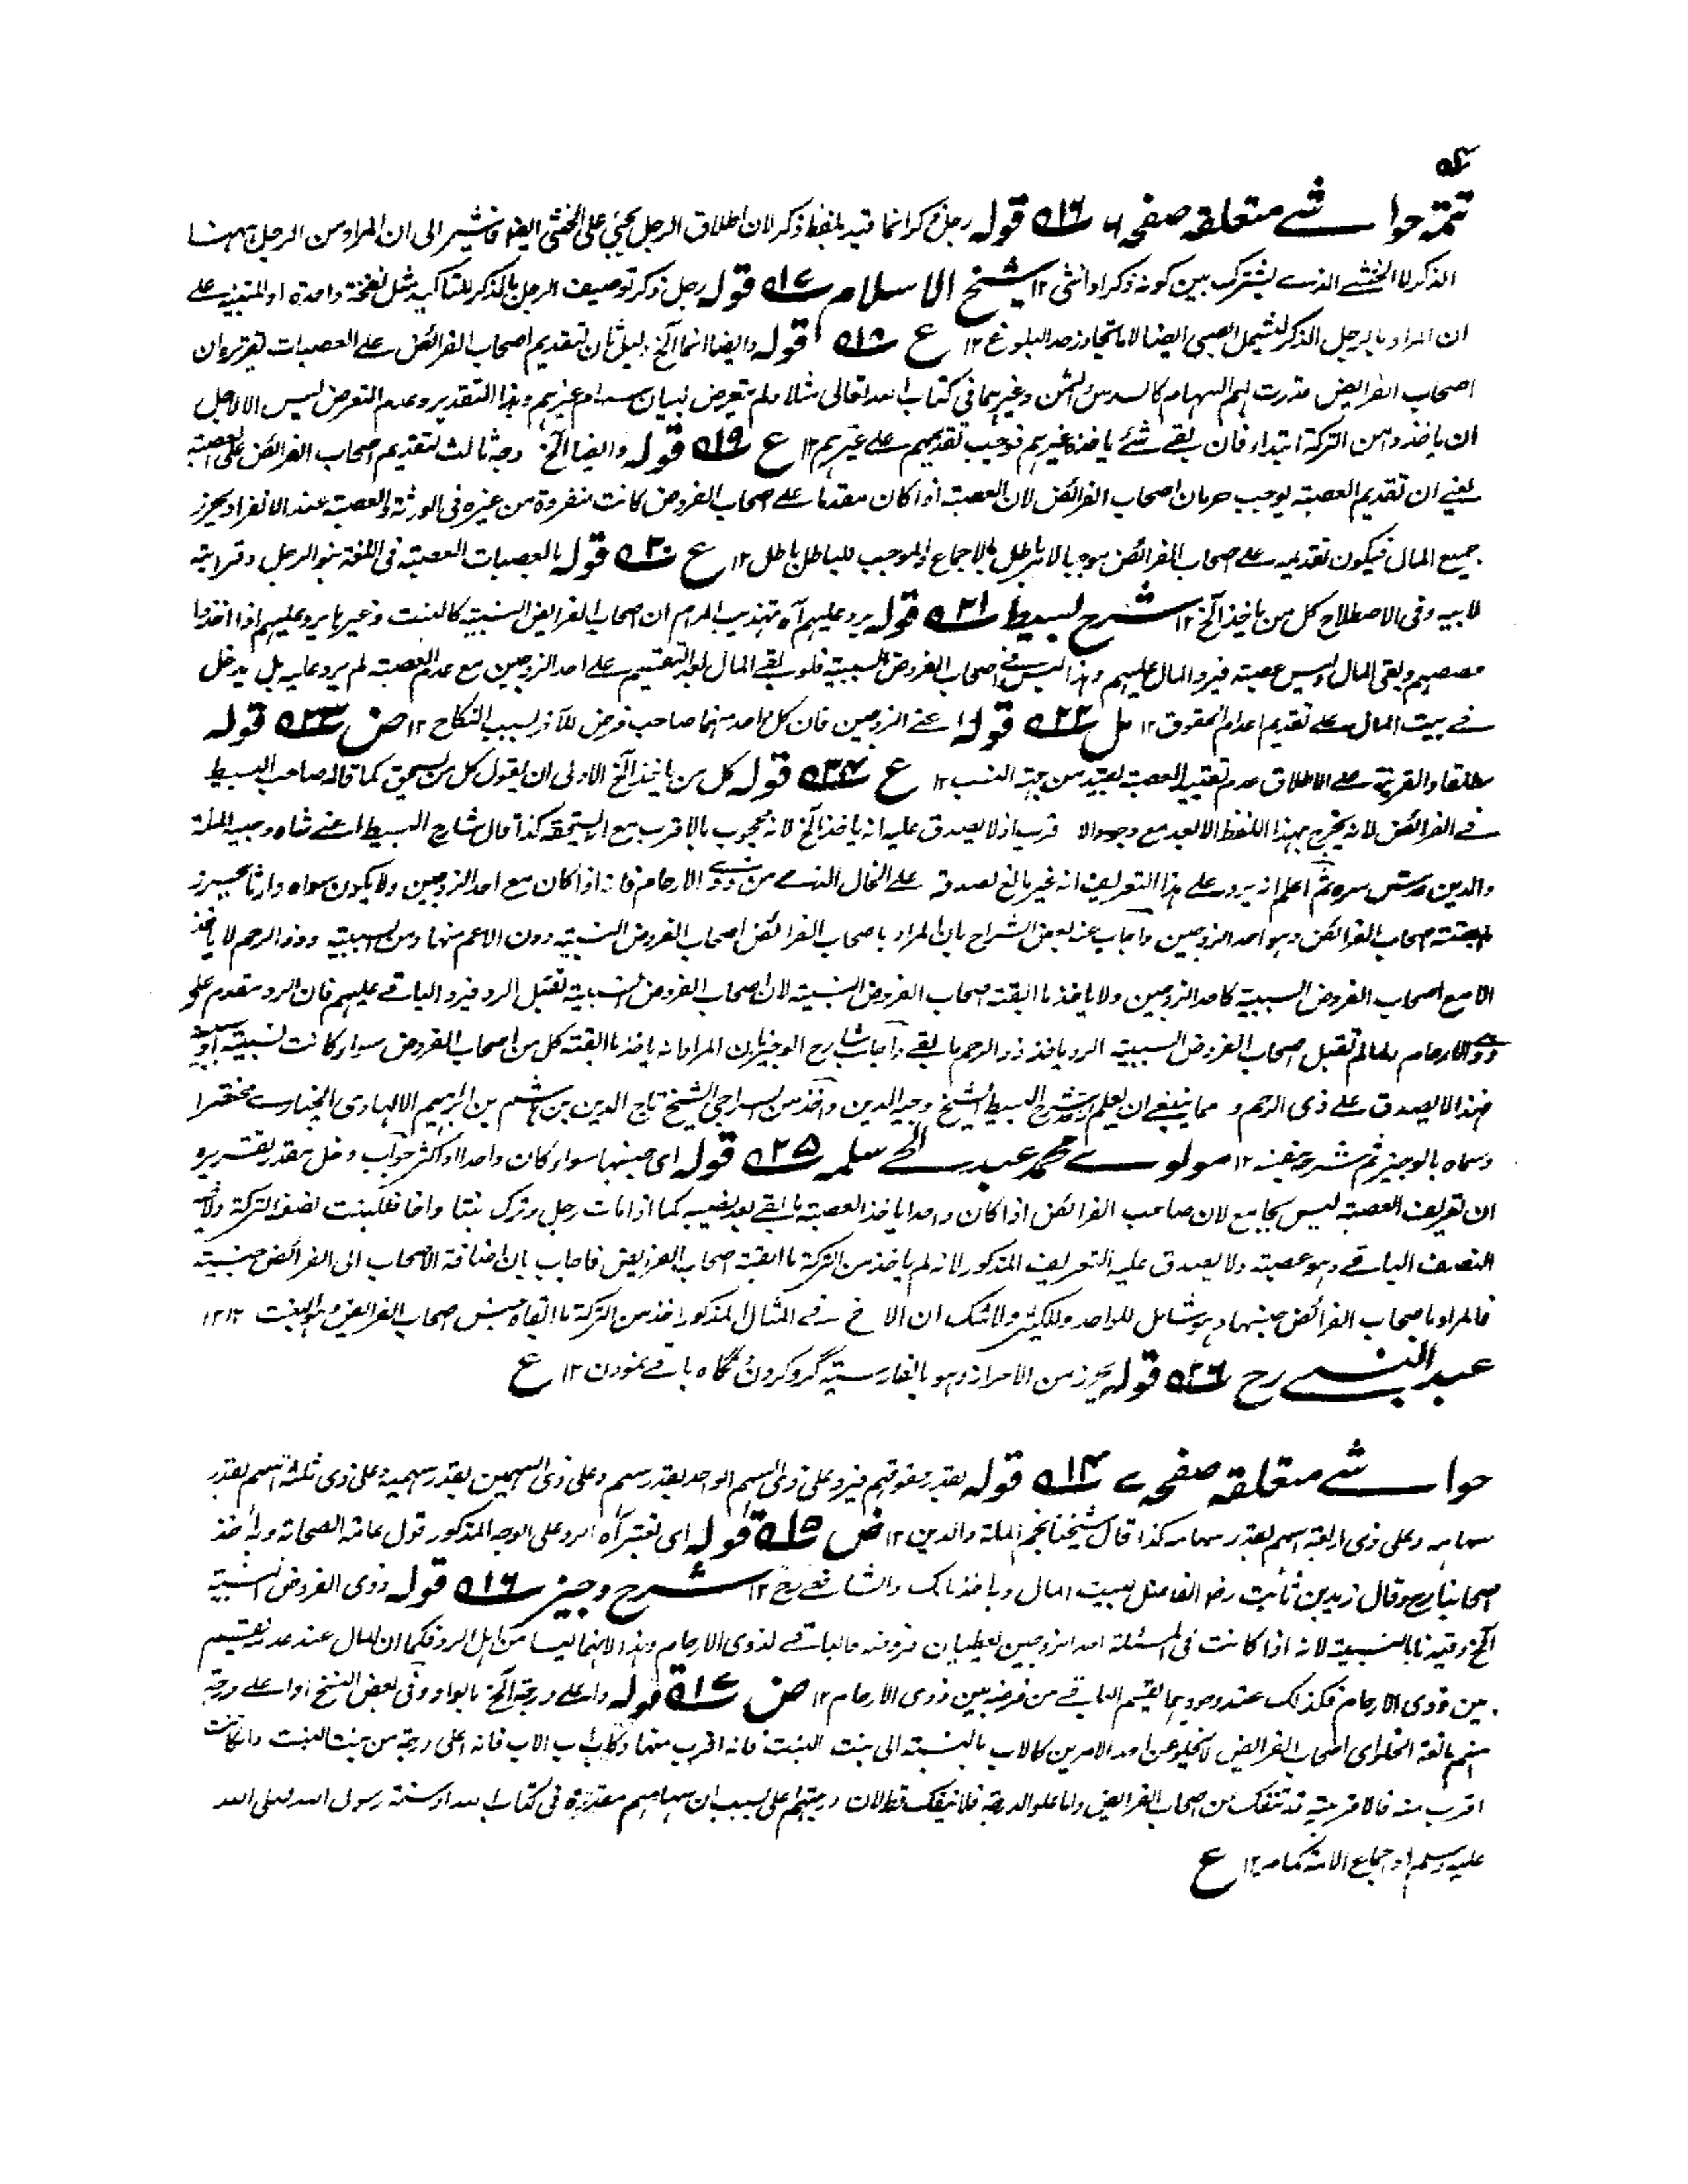 تتمۃ حواشے متعلقہ صفحہ ۶ ۵۱۶ قولہ رجل ذکر انما قید بلفظ ذکر لان اطلاق الرجل یجئ علی الخنثی ایضا فاشیر الی ان المراد من الرجل ہہنا
الذکر لا الخنثے الذے یشترک بین کونہ ذکرا و انثی ۱۲ شیخ الاسلام ۵۱۷ قولہ رجل ذکر توصیف الرجل بالذکر للتاکید مثل نفخۃ واحدۃ او للتنبیہ علے
ان المراد بالرجل الذکر لیشمل الصبی ایضا لا ما تجاوز حد البلوغ ۱۲ ع ۵۱۸ قولہ و ایضا انما الخ دلیل ثان لتقدیم اصحاب الفرائض علے العصبات تقریرہ ان
اصحاب الفرایض قدرت لہم السہام کالسدس و الثمن و غیرہما فی کتاب اللہ تعالی مثلا و لم یتعرض لبیان سہام غیرہم و ہذا التقدیر و عدم التعرض لیس الا لاجل
ان یاخذوا من الترکۃ ابتداء فان بقے شئے یاخذ غیرہم فوجب تقدیمہم علے غیرہم ۱۲ ع ۵۱۹ قولہ و ایضا الخ وجہ ثالث لتقدیم اصحاب الفرائض علی العصبۃ
یعنے ان تقدیم العصبۃ یوجب حرمان اصحاب الفرائض لان العصبۃ اذا کان مقدما علے اصحاب الفروض کانت منفردۃ من غیرہ فی الورثۃ و العصبۃ عند الانفراد یحرز
جمیع المال فیکون تقدیمہ علے اصحاب الفرائض موجبا لامر باطل بالاجماع و الموجب للباطل باطل ۱۲ ع ۵۲۰ قولہ بالعصبات العصبۃ فی اللغۃ بنو الرجل و قرابتہ
لابیہ و فی الاصطلاح کل من یاخذ الخ ۱۲ شرح بسیط ۵۲۱ قولہ یرد علیہم آہ تہذیب المرام ان اصحاب الفرایض النسبیۃ کالبنت و غیرہا یرد علیہم اذا اخذوا
حصصہم و بقی المال و لیس عصبۃ فیرد المال علیہم و ہذا لیس فے اصحاب الفروض السببیۃ فلو بقے المال بعد التقسیم علے احد الزوجین مع عدم العصبۃ لم یرد علیہ بل یدخل
فے بیت المال علے تقدیر عدم الحقوق ۱۲ مل ۵۲۲ قولہ عنے الزوجین فان کل واحد منہما صاحب فرض للآخر بسبب النکاح ۱۲ ض ۵۲۳ قولہ
مطلقا و القرینۃ علے الاطلاق عدم تقیید العصبۃ بقید من جہۃ النسب ۱۲ ع ۵۲۴ قولہ کل من یاخذ الخ الاولی ان یقول کل من یستحق کما قالہ صاحب البسیط
فے الفرائض لانہ یخرج بہذا اللفظ الابعد مع وجود الا قرب اذ لا یصدق علیہ انہ یاخذ الخ لانہ محجوب بالاقرب مع انہ یستحقہ کذا قال شارح البسیط اعنے شاہ وجیہ الملۃ
والدین قدس سرہ ثم اعلم انہ یرد علے ہذا التعریف انہ غیر مانع لصدقہ علے الخال الذے من ذوے الارحام فانہ اذا کان مع احد الزوجین و لا یکون سواہ وارثا یحرز
ما ابقتہ اصحاب الفرائض و ہو احد الزوجین و اجاب عنہ بعض الشراح بان المراد باصحاب الفرائض اصحاب الفروض النسبیۃ دون الاعم منہا و من السببیۃ و ذو الرحم لا یاخذ
الا مع اصحاب الفروض السببیۃ کاحد الزوجین و لا یاخذ ما ابقتہ اصحاب الفروض النسبیۃ لان اصحاب الفروض النسبیۃ تقبل الرد فیرد الباقے علیہم فان الرد مقدم علی
ذوے الارحام بما لم تقبل اصحاب الفروض السببیۃ الرد یاخذ ذو الرحم ما بقے و اجاب شارح الوجیز بان المراد انہ یاخذ ما ابقتہ کل من اصحاب الفروض سواء کانت نسبیۃ او سببیۃ
فہذا لا یصدق علے ذی الرحم و مما ینبغے ان یعلم ان شرح البسیط للشیخ وجیہ الدین و اخذ من السراجی الشیخ تاج الدین بن ہاشم بن ابراہیم مختصرا
و سماہ بالوجیز ثم شرحہ بنفسہ ۱۲ مولوے محمد عبد الحے سلمہ ۵۲۵ قولہ ای جنسہا سواء کان واحدا او اکثر جواب دخل مقدر تقریرہ
ان تعریف العصبۃ لیس بجامع لان صاحب الفرائض اذا کان واحدا یاخذ العصبۃ ما بقے بعد نصیبہ کما اذا مات رجل و ترک بنتا و اخا فللبنت نصف الترکۃ و لاخیہ
النصف الباقے و ہو عصبۃ و لا یصدق علیہ التعریف المذکور لانہ لم یاخذ من الترکۃ ما ابقتہ اصحاب الفرایض فاجاب بان اضافۃ الاصحاب الی الفرائض جنسیۃ
فالمراد باصحاب الفرائض جنسہا و ہو شامل للواحد و للکثیر و لا شک ان الاخ فے المثال المذکور اخذ من الترکۃ ما ابقاہ جنس اصحاب الفرایض و ہو البنت ۱۲
عبد النبے رح ۵۲۶ قولہ یحرز من الاحراز و ہو بالفارسیۃ گرد کردن و نگاہ باقے نمودن ۱۲ ع
حواشے متعلقہ صفحہ ۷ ۵۱۴ قولہ بقدر حقوقہم فیرد علی ذی السہم الواحد بقدر سہم و علی ذی السہمین بقدر سہمیہ و علی ذی ثلثۃ اسہم بقدر
سہامہ و علی ذی اربعۃ اسہم بقدر سہامہ کذا قال شیخنا نجم الملۃ والدین ۱۲ ض ۵۱۵ قولہ ای نعتبر آہ الرد علی الوجہ المذکور قول عامۃ الصحابۃ و بہ اخذ
اصحابنا رح و قال زید بن ثابت رض الفاضل لبیت المال و بہ اخذ مالک و الشافعے رح ۱۲ شرح وجیز ۵۱۶ قولہ ذوی الفروض النسبیۃ
الخ و قیدنا بالنسبیۃ لانہ اذا کانت فی المسئلۃ احد الزوجین یعطیان فروضہ و الباقے لذوی الارحام و ہذا لانہما لیسا من اہل الرد فکما ان المال عند عدمہ یقسم
بین ذوی الارحام فکذلک عند وجودہما یقسم الباقے من فرضہ بین ذوی الارحام ۱۲ ض ۵۱۷ قولہ و اعلے درجۃ الخ بالواو و فی بعض النسخ او اعلے درجۃ
منہم مانعۃ الخلو ای اصحاب الفرایض لا تخلو عن احد الامرین کالاب بالنسبۃ الی بنت البنت فانہ اقرب منہا و کاب اب الاب فانہ اعلی درجۃ من بنت البنت و ان کانت
اقرب منہ فالاقربیۃ قد تنفک عن اصحاب الفرایض و اما علو الدرجۃ فلا ینفک قط لان درجتہم اعلی بسبب ان سہامہم مقدرۃ فی کتاب اللہ او سنۃ رسول اللہ صلی اللہ
علیہ وسلم او اجماع الامۃ کما مر ۱۲ ع